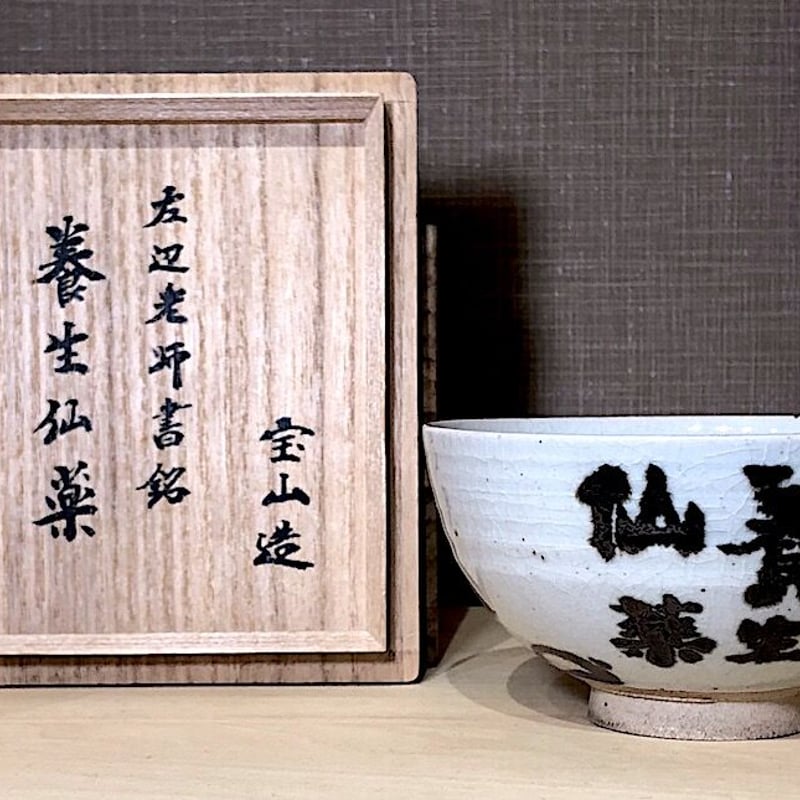 宝山造
左辺老師書銘
養生仙薬
養生
仙薬